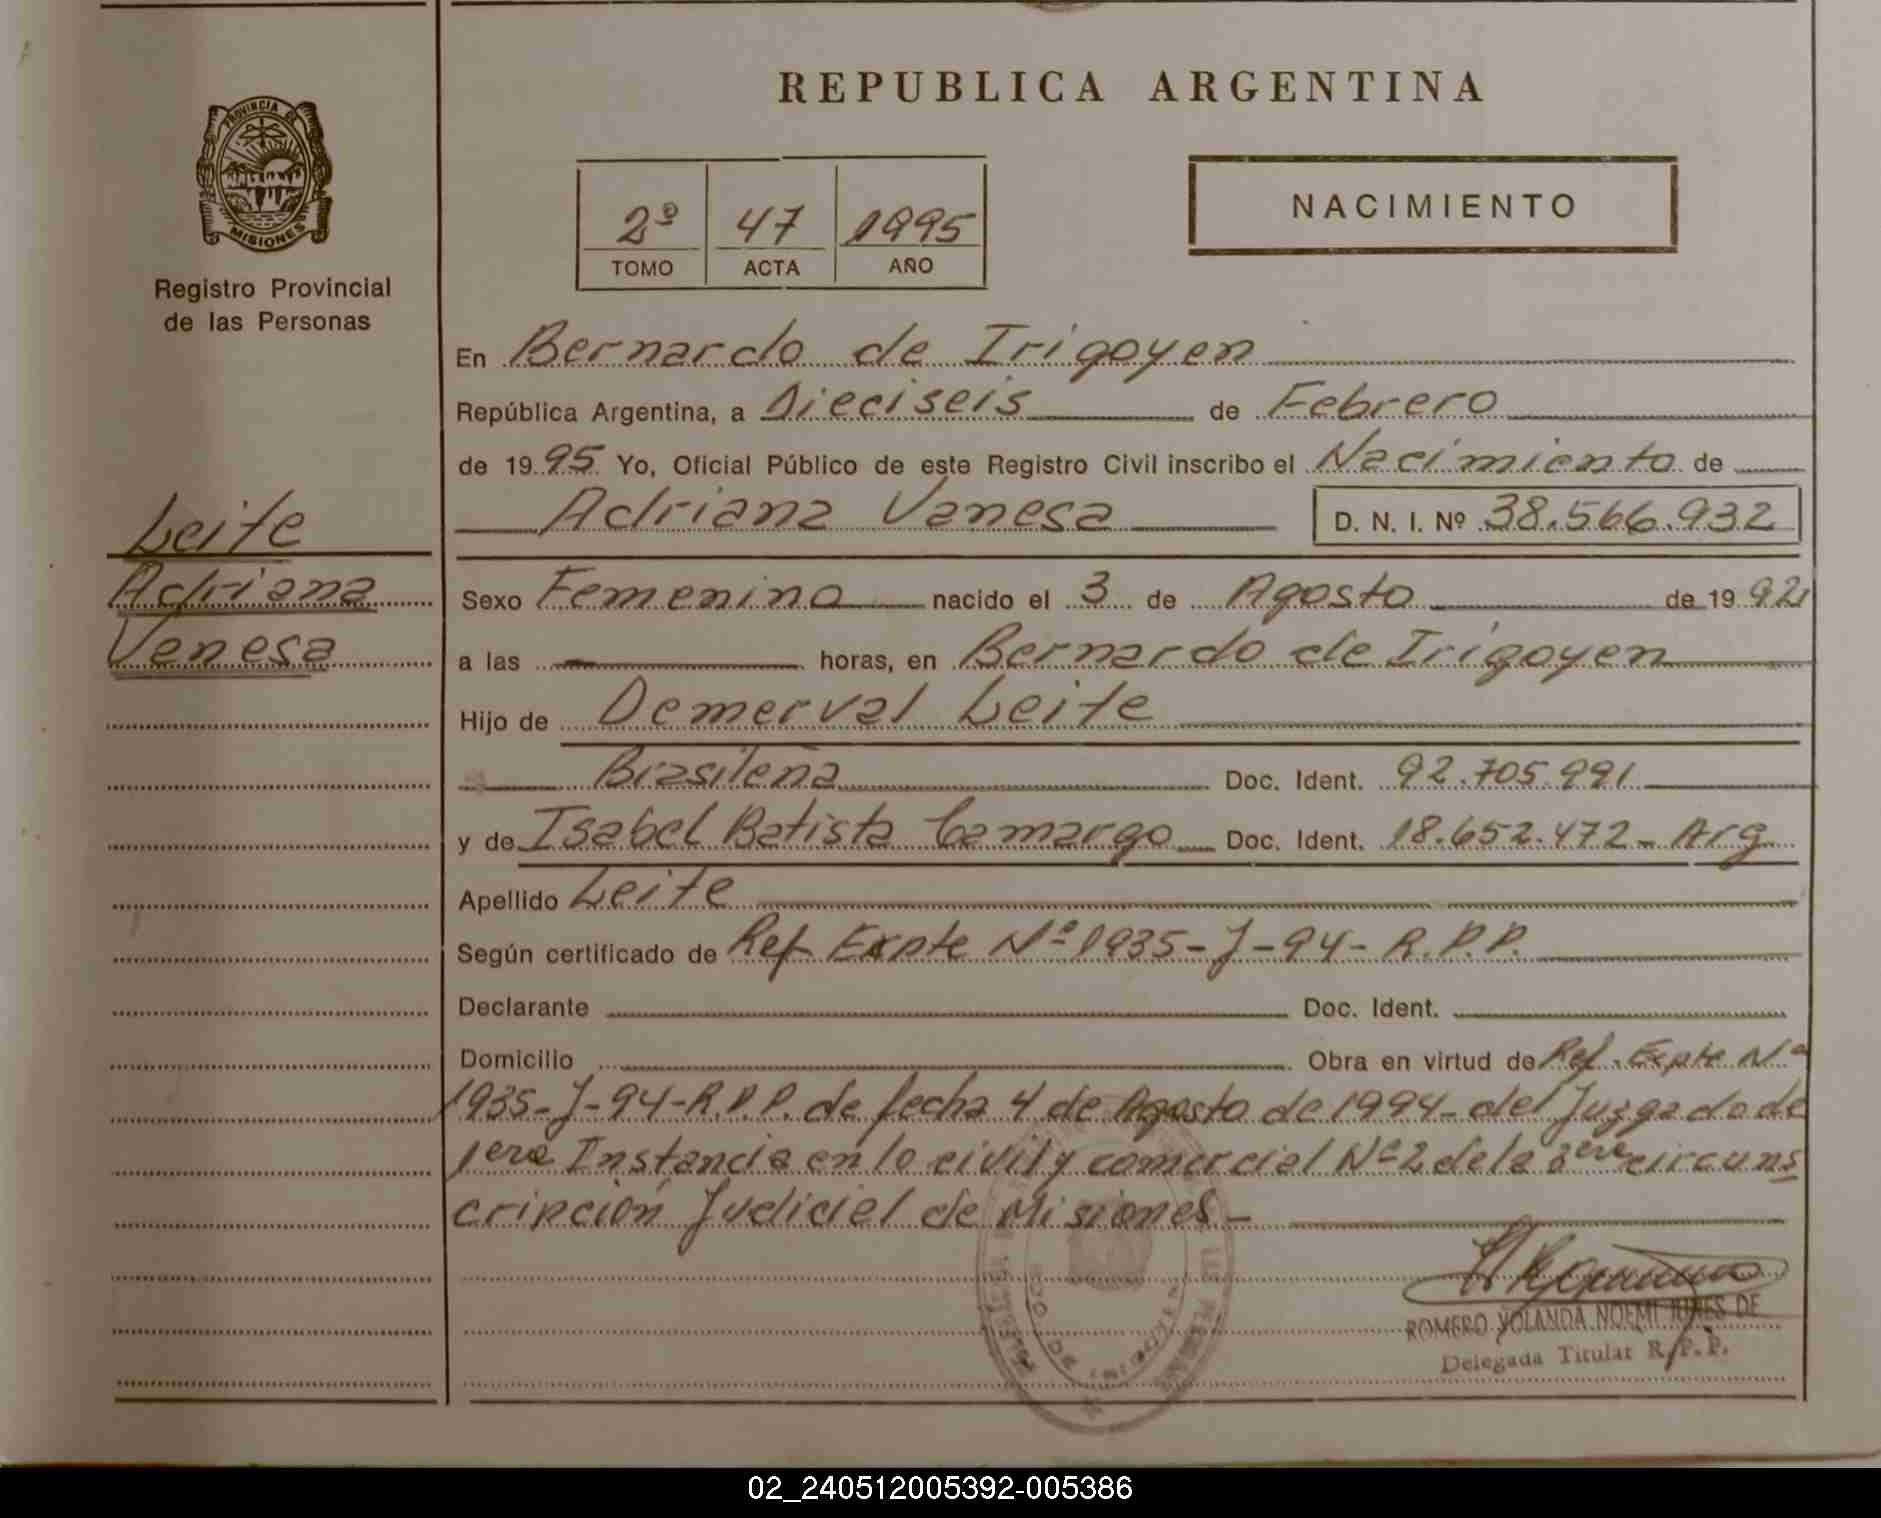 REPUBLICA ARGENTINA
PROVINCIA DE
MISIONES
Registro Provincial
de las Personas
2º 47 1995
TOMO ACTA AÑO
NACIMIENTO
Leite
Adriana
Vanesa
En Bernardo de Irigoyen
República Argentina, a Dieciseis de Febrero
de 1995 Yo, Oficial Público de este Registro Civil inscribo el Nacimiento de
Adriana Vanesa D. N. I. Nº 38.566.932
Sexo Femenino nacido el 3 de Agosto de 1992
a las horas, en Bernardo de Irigoyen
Hijo de Demerval Leite
Brasileña Doc. Ident. 92.705.991
y de Isabel Batista Camargo Doc. Ident. 18.652.472 - Arg
Apellido Leite
Según certificado de Ref Expte Nº 1935-J-94- R.P.P.
Declarante Doc. Ident.
Domicilio Obra en virtud de Ref. Expte Nº
1935-J-94-R.P.P. de fecha 4 de Agosto de 1994- del Juzgado de
1era Instancia en lo civil y comercial Nº 2 de la 3era circuns
cripción Judicial de Misiones-
ROMERO YOLANDA NOEMI DE
Delegada Titular R.P.P.
02_240512005392-005386